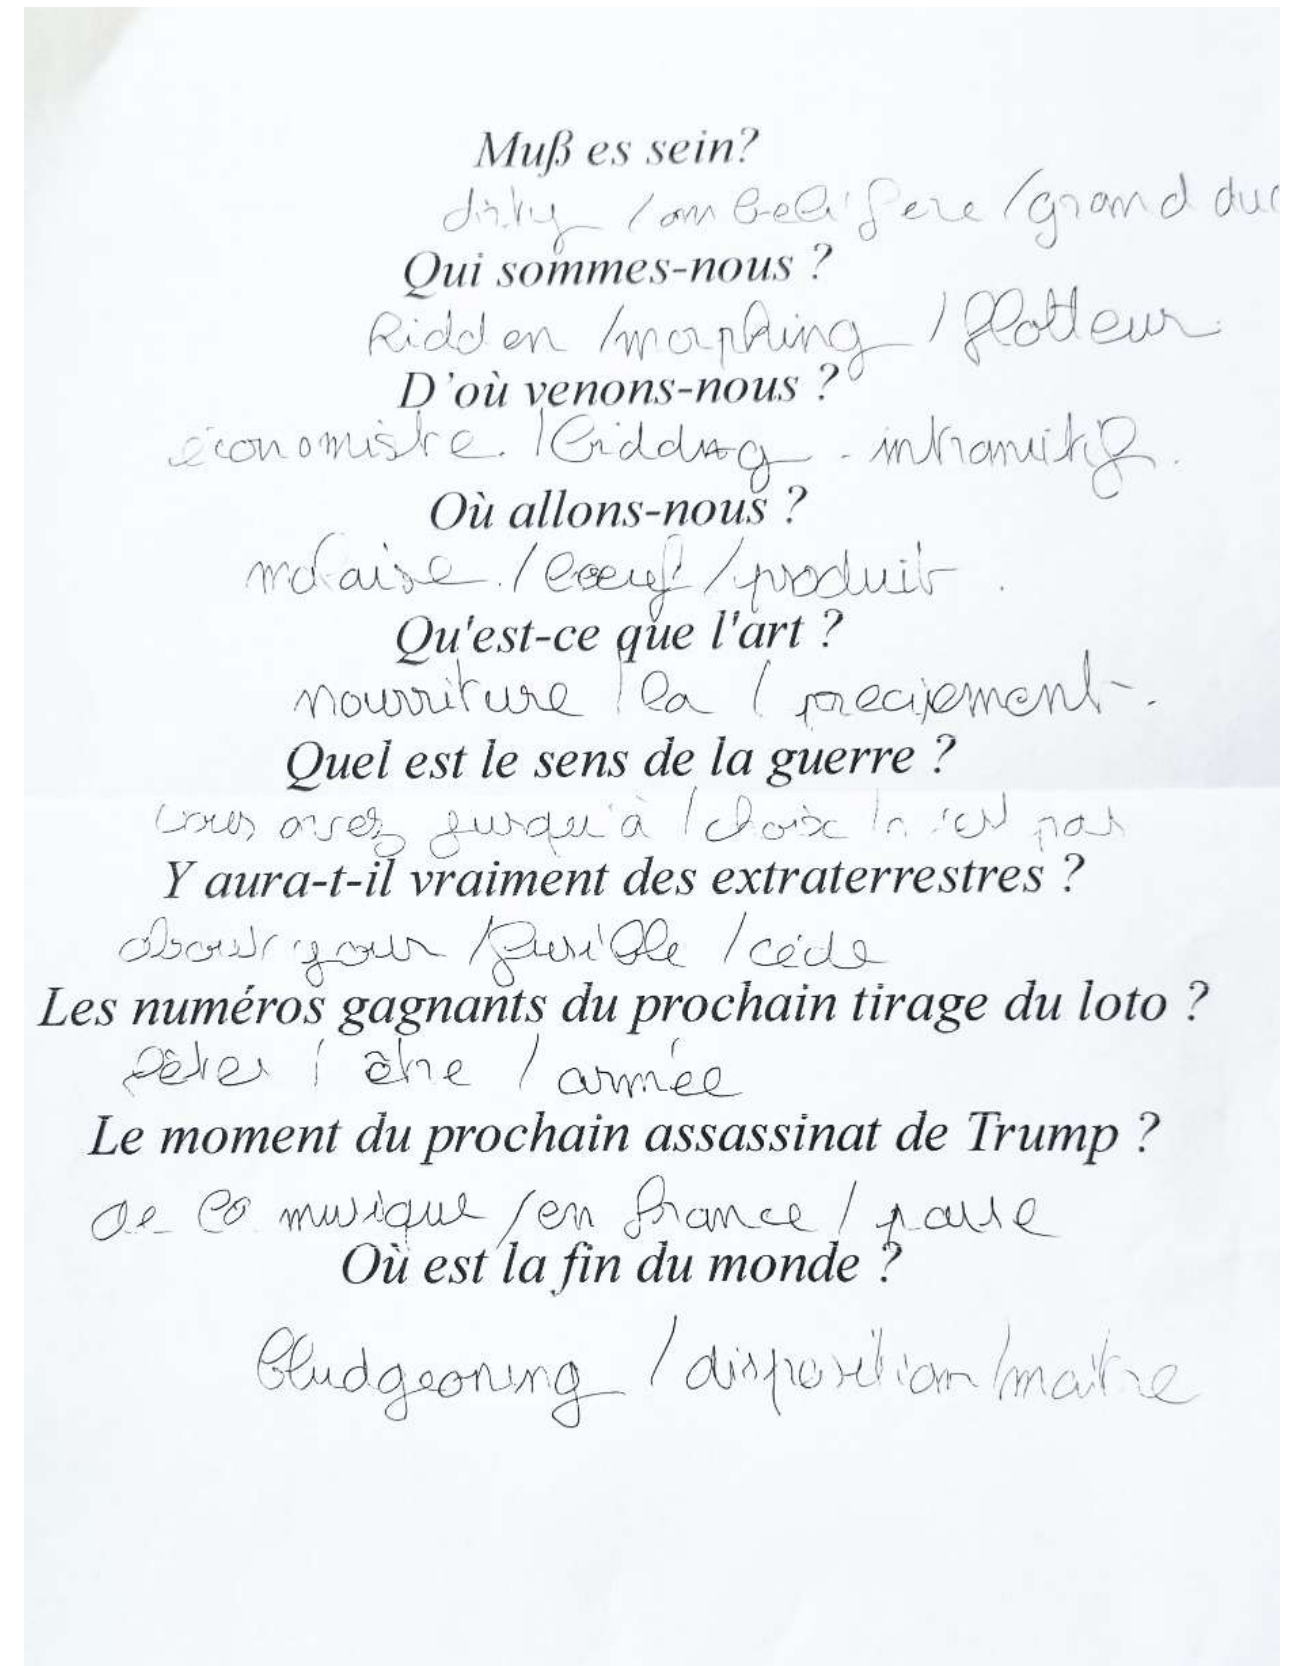 Muß es sein?
dirty / ombelifere / grand duc
Qui sommes-nous ?
hidden / morphing / flotteur
D'où venons-nous ?
économiste. / bidding - intransitif.
Où allons-nous ?
malaise. / bœuf / produit.
Qu'est-ce que l'art ?
nourriture / la / precisement.
Quel est le sens de la guerre ?
vous avez jusqu'à / choix / n'est pas
Y aura-t-il vraiment des extraterrestres ?
about your / fusible / cède
Les numéros gagnants du prochain tirage du loto ?
/ être / armée
Le moment du prochain assassinat de Trump ?
de la musique / en france / passe
Où est la fin du monde ?
bludgeoning / disposition / maître